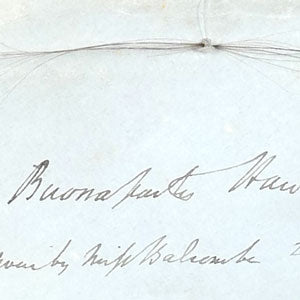 Buonapartes Hair
by Miss Balcombe